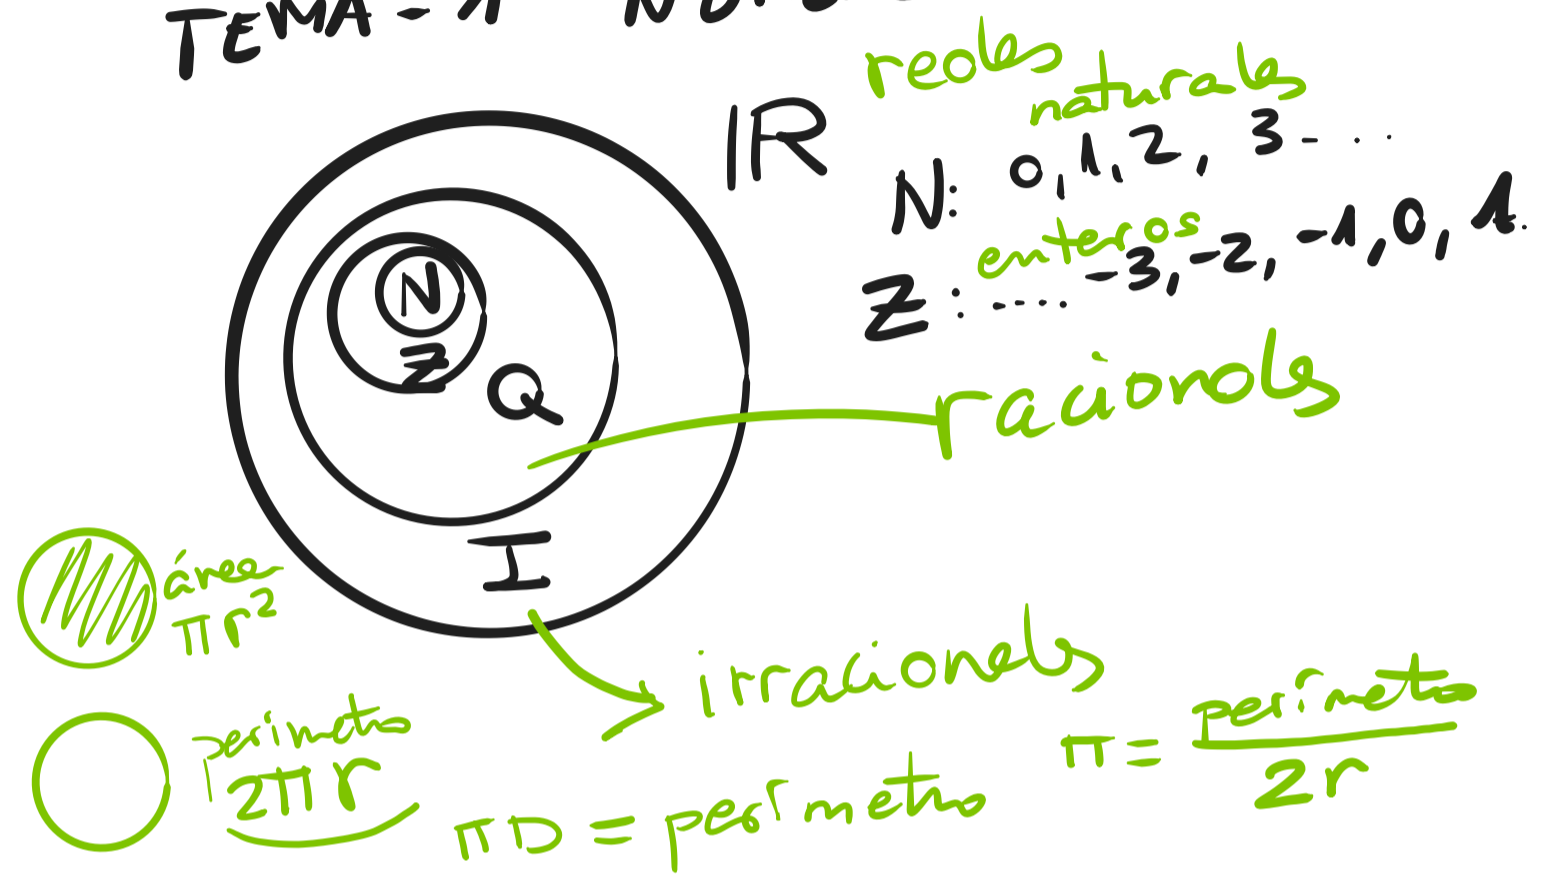 TEMA - 1
reales
IR
naturales
N: 0, 1, 2, 3 - . .
enteros
Z : ..... -3, -2, -1, 0, 1.
N
Z
Q
racionales
I
área
πr²
irracionales
perímetro
2πr
πD = perímetro
π = perímetro
2r